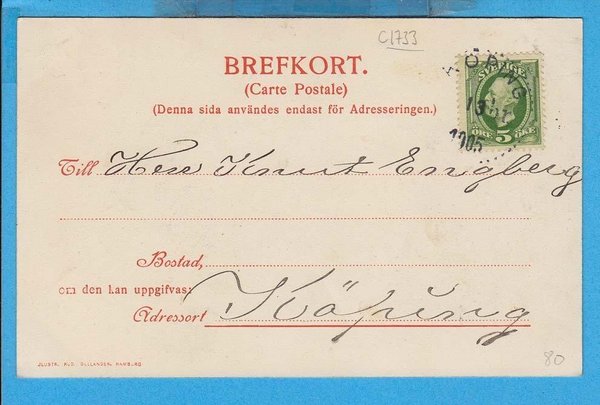 C1733
BREFKORT.
(Carte Postale)
(Denna sida användes endast för Adresseringen.)
SVERIGE
KÖPING
1905
ÖRE 5 ÖRE
Till Herr Knut Engberg
Bostad,
om den kan uppgifvas:
Adressort Köping
80